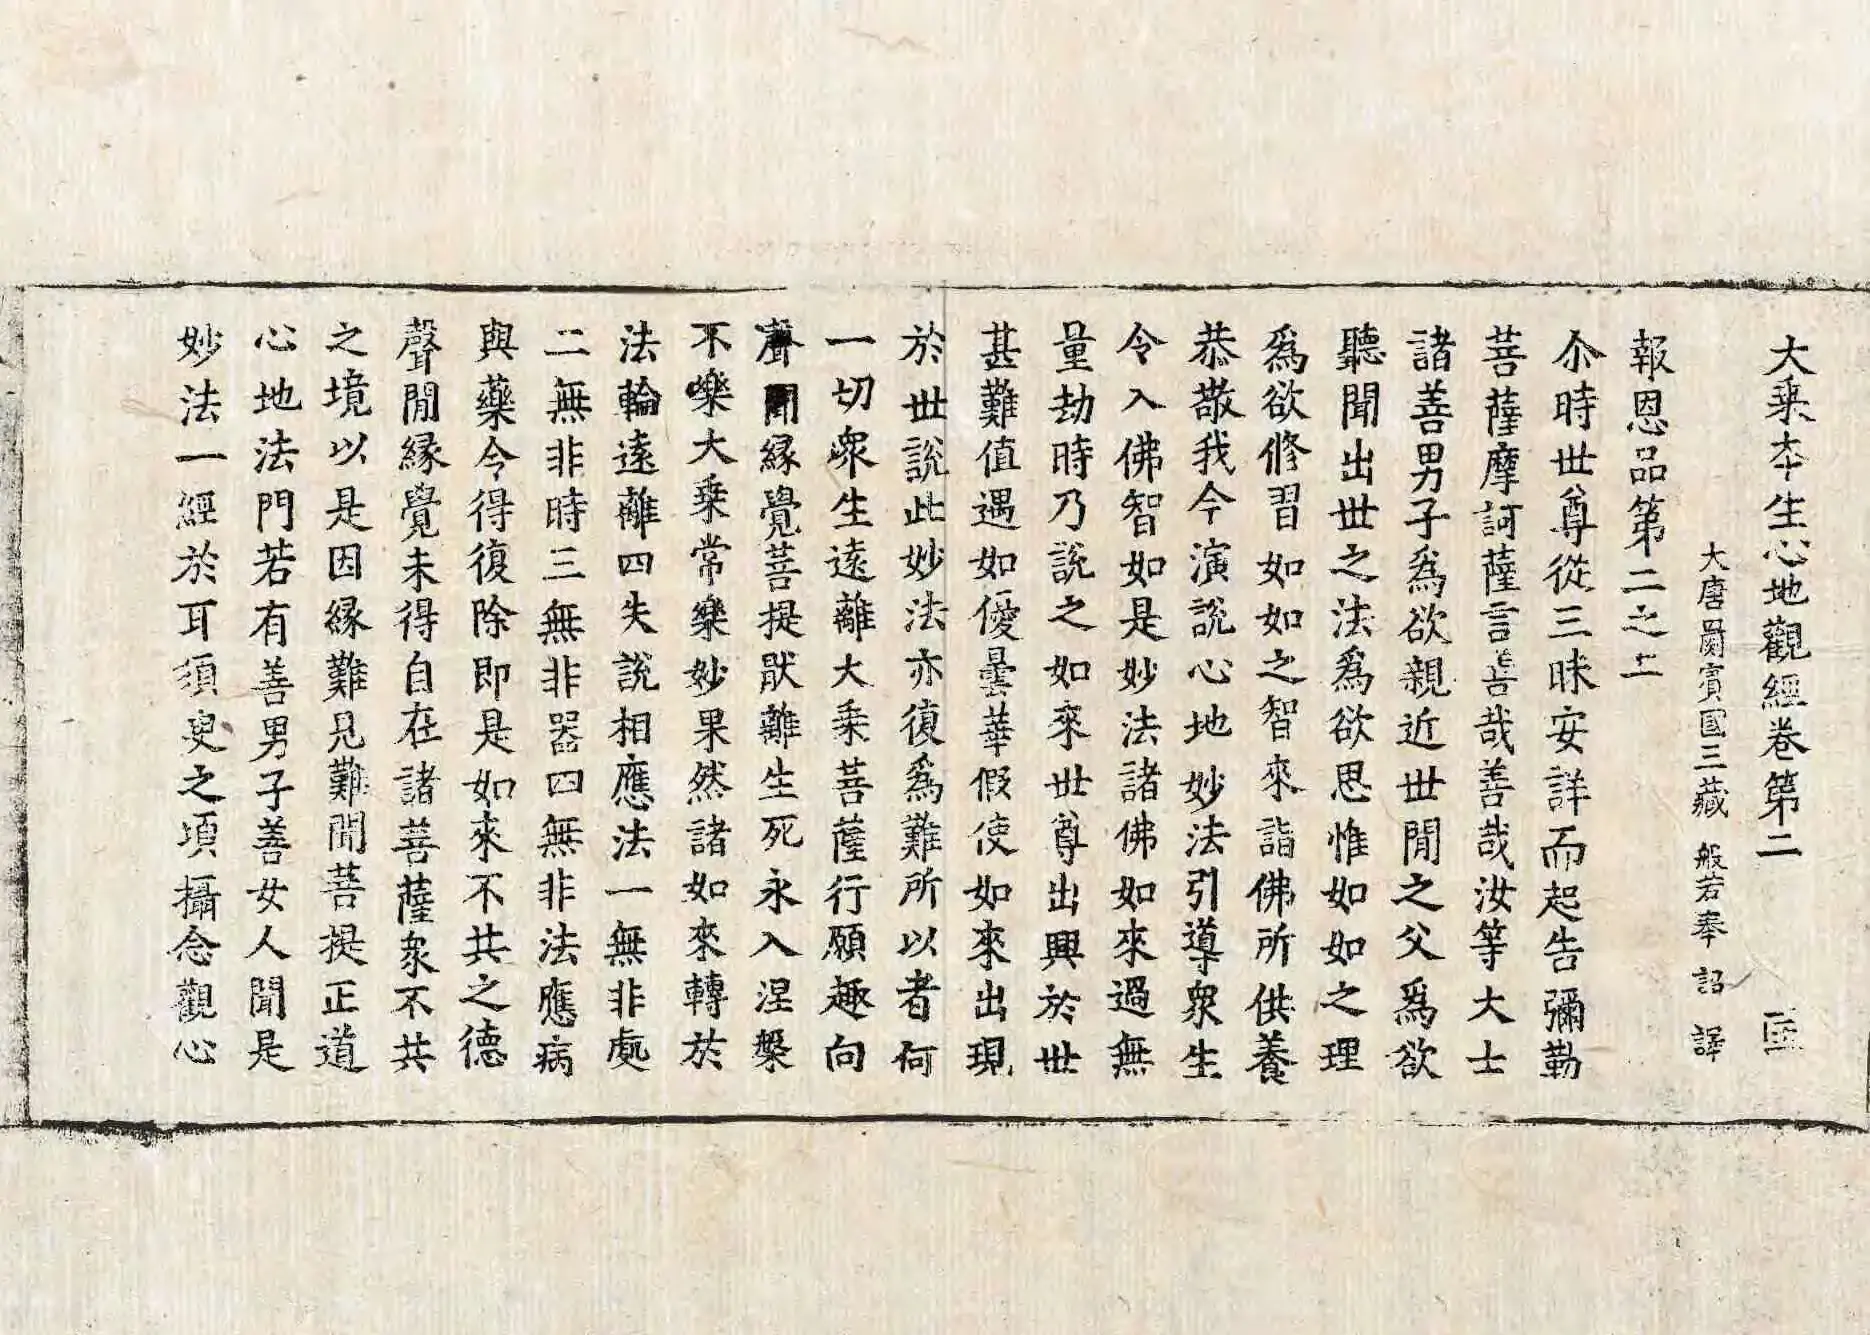 大乘本生心地觀經卷第二 匡
大唐罽賓國三藏 般若奉 詔 譯
報恩品第二之上
尒時世尊從三昧安詳而起告彌勒
菩薩摩訶薩言善哉善哉汝等大士
諸善男子爲欲親近世間之父爲欲
聽聞出世之法爲欲思惟如如之理
爲欲修習如如之智來詣佛所供養
恭敬我今演說心地妙法引導衆生
令入佛智如是妙法諸佛如來過無
量劫時乃說之如來世尊出興於世
甚難值遇如優曇華假使如來出現
於世說此妙法亦復爲難所以者何
一切衆生遠離大乘菩薩行願趣向
聲聞緣覺菩提猒離生死永入涅槃
不樂大乘常樂妙果然諸如來轉於
法輪遠離四失說相應法一無非處
二無非時三無非器四無非法應病
與藥令得復除即是如來不共之德
聲聞緣覺未得自在諸菩薩衆不共
之境以是因緣難見難聞菩提正道
心地法門若有善男子善女人聞是
妙法一經於耳須臾之頃攝念觀心